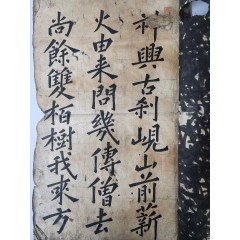 神興古刹峴山前薪
火由来問幾傳僧去
尚餘雙栢樹我来方